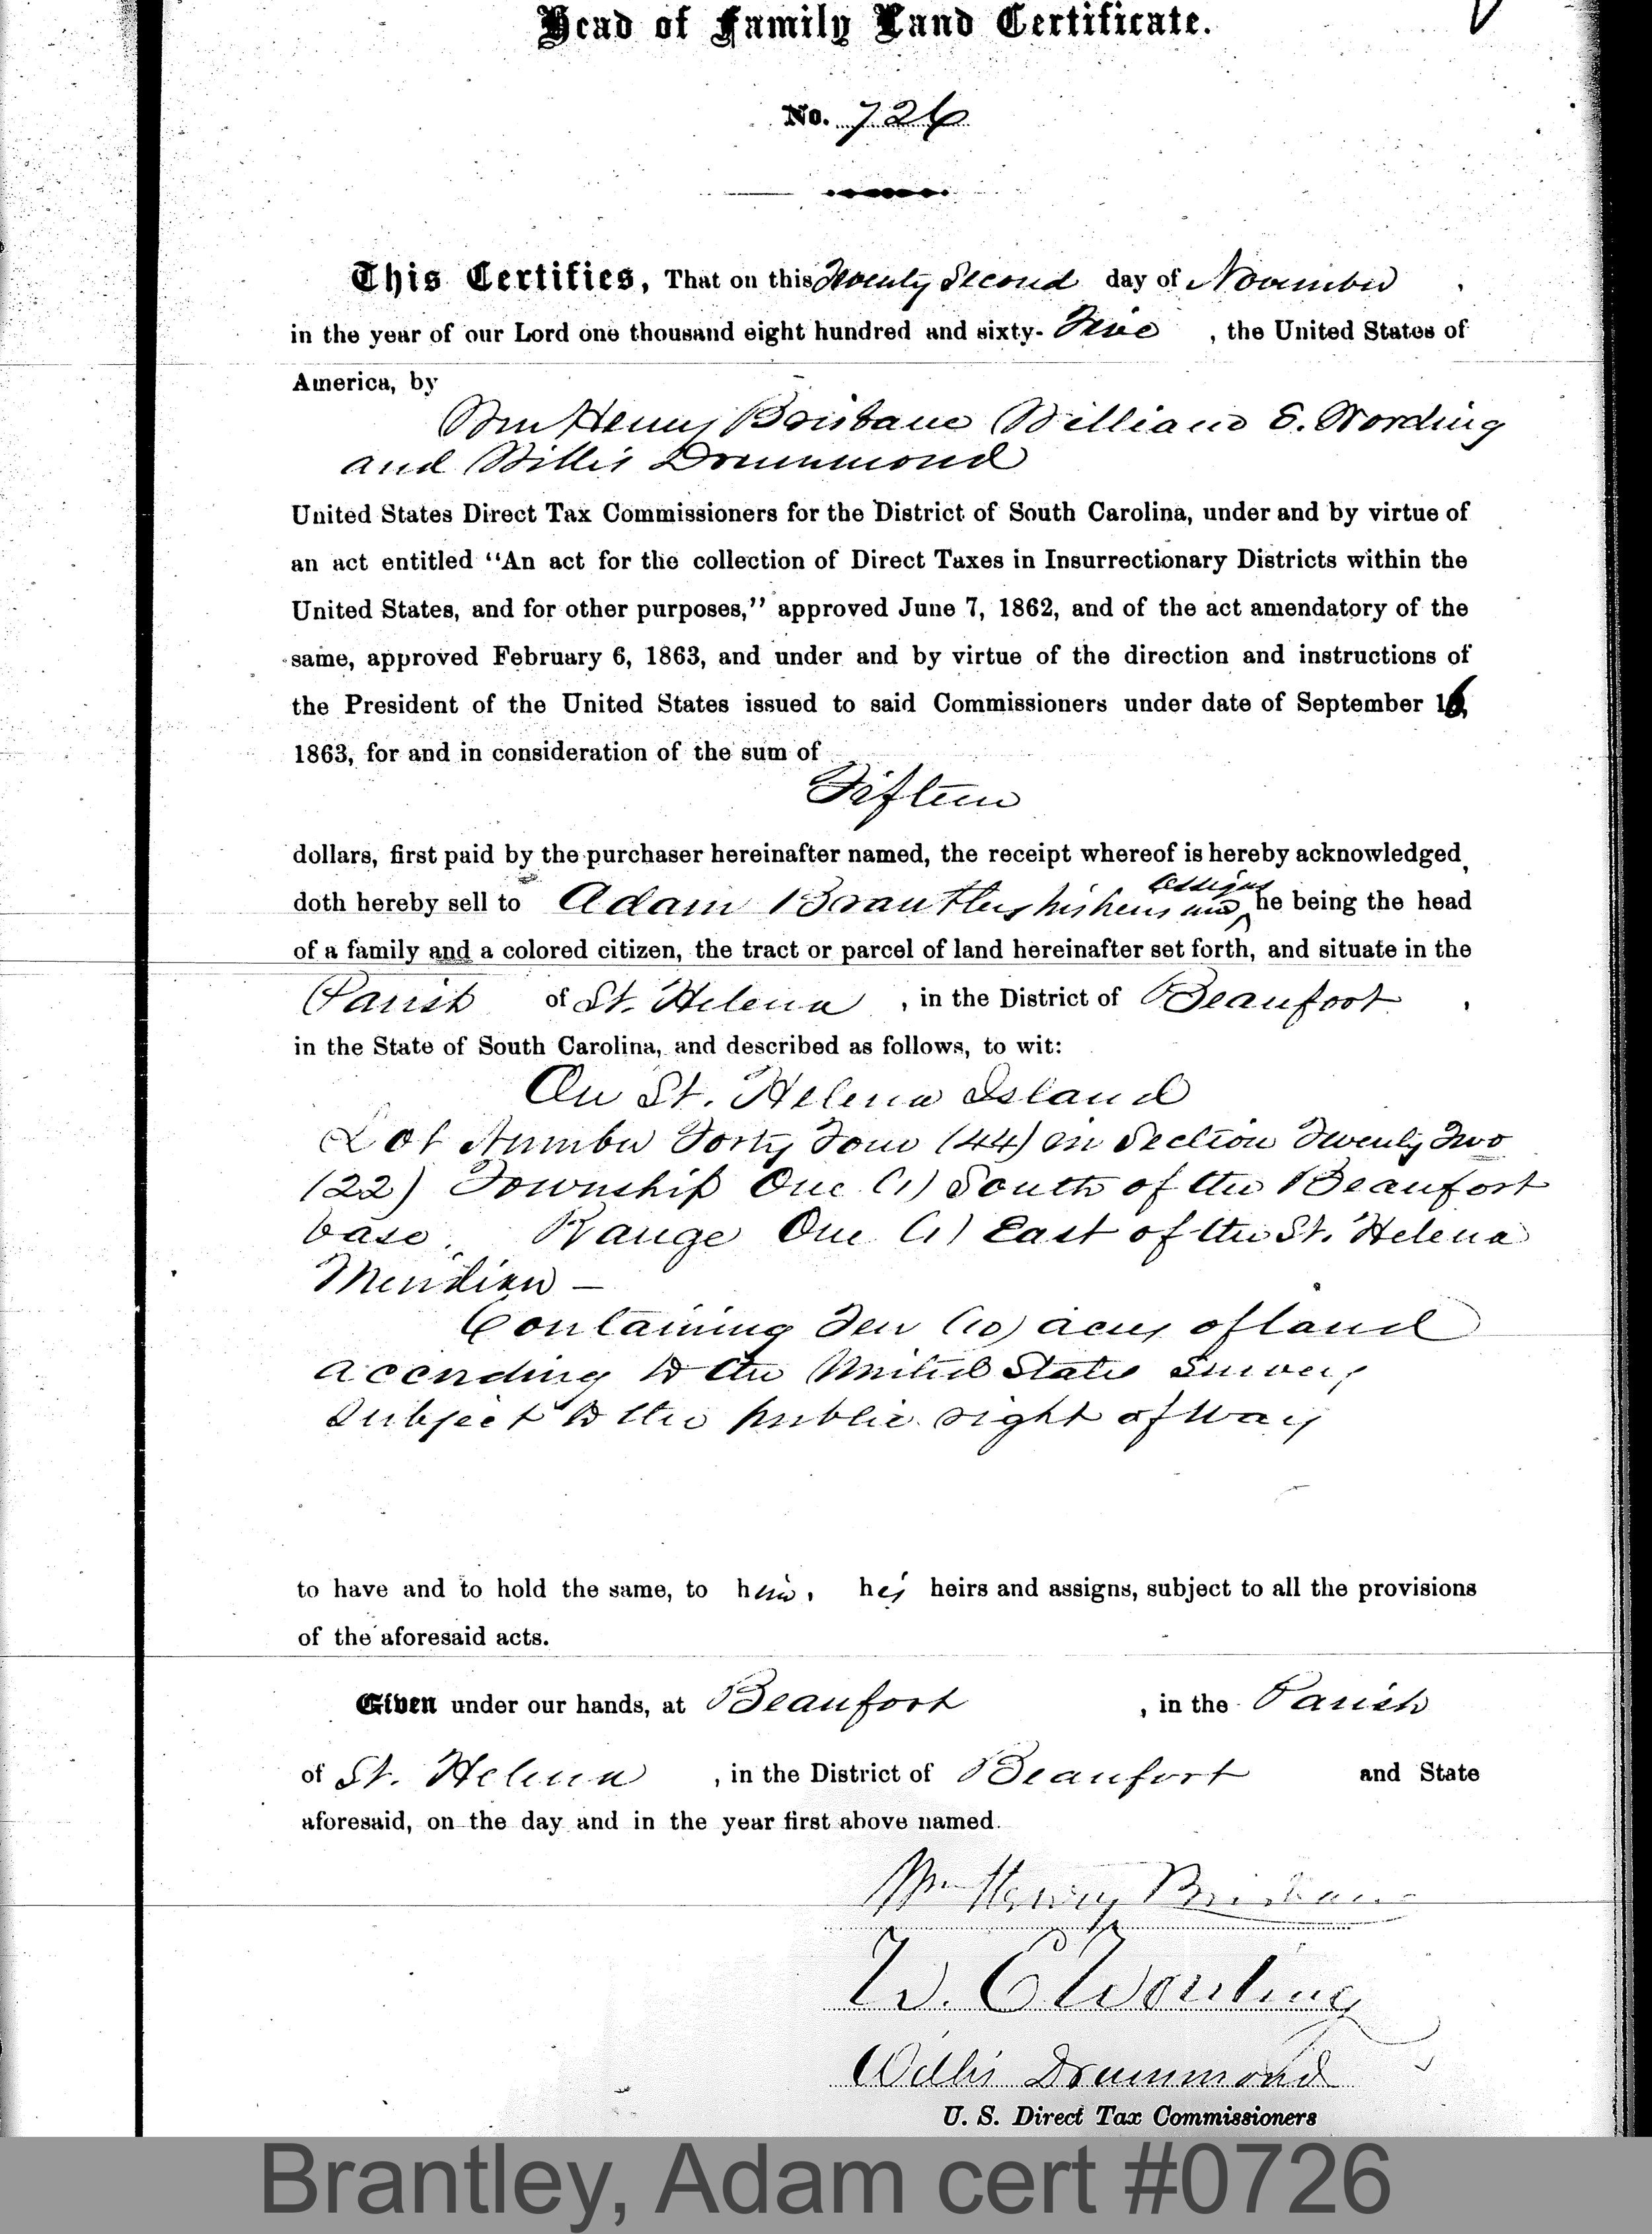 Head of Family Land Certificate.
No. 726
This Certifies, That on this Twenty Second day of November
in the year of our Lord one thousand eight hundred and sixty- Five , the United States of
America, by
Wm Henry Brisbane William E. Wording
and Willis Drummond
United States Direct Tax Commissioners for the District of South Carolina, under and by virtue of
an act entitled "An act for the collection of Direct Taxes in Insurrectionary Districts within the
United States, and for other purposes," approved June 7, 1862, and of the act amendatory of the
same, approved February 6, 1863, and under and by virtue of the direction and instructions of
the President of the United States issued to said Commissioners under date of September 16,
1863, for and in consideration of the sum of
Fifteen
dollars, first paid by the purchaser hereinafter named, the receipt whereof is hereby acknowledged,
doth hereby sell to Adam Brantley his heirs and assigns he being the head
of a family and a colored citizen, the tract or parcel of land hereinafter set forth, and situate in the
Parish of St. Helena , in the District of Beaufort
in the State of South Carolina, and described as follows, to wit:
On St. Helena Island
Lot Number Forty Four (44) in Section Twenty Two
(22) Township One (1) South of the Beaufort
base. Range One (1) East of the St. Helena
Meridian —
Containing Ten (10) acres of land
according to the United States Survey
Subject to the public right of way
to have and to hold the same, to him, his heirs and assigns, subject to all the provisions
of the aforesaid acts.
Given under our hands, at Beaufort , in the Parish
of St. Helena , in the District of Beaufort and State
aforesaid, on the day and in the year first above named.
Wm Henry Brisbane
W. E. Wording
Willis Drummond
U. S. Direct Tax Commissioners
Brantley, Adam cert #0726